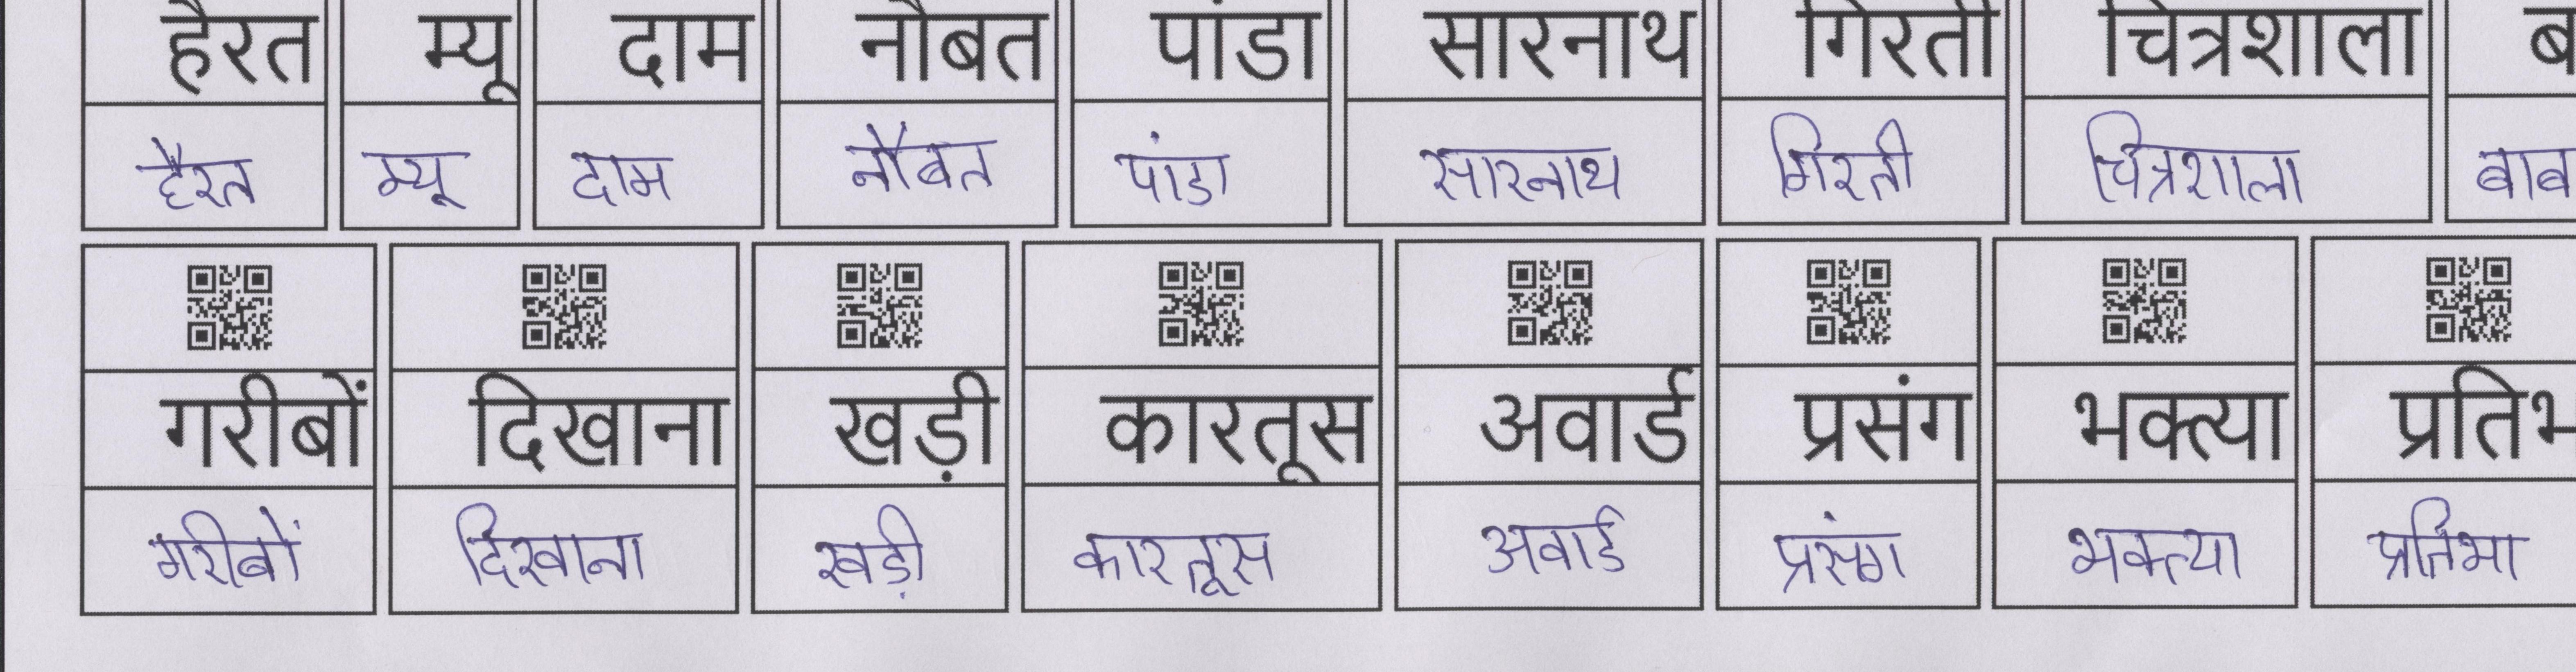 हैरत म्यू दाम नौबत पांडा सारनाथ गिरती चित्रशाला
हैरत म्यू दाम नौबत पांडा सारनाथ गिरती चित्रशाला
गरीबों दिखाना खड़ी कारतूस अवार्ड प्रसंग भक्त्या
गरीबों दिखाना खड़ी कारतूस अवार्ड प्रसंग भक्त्या प्रतिभा